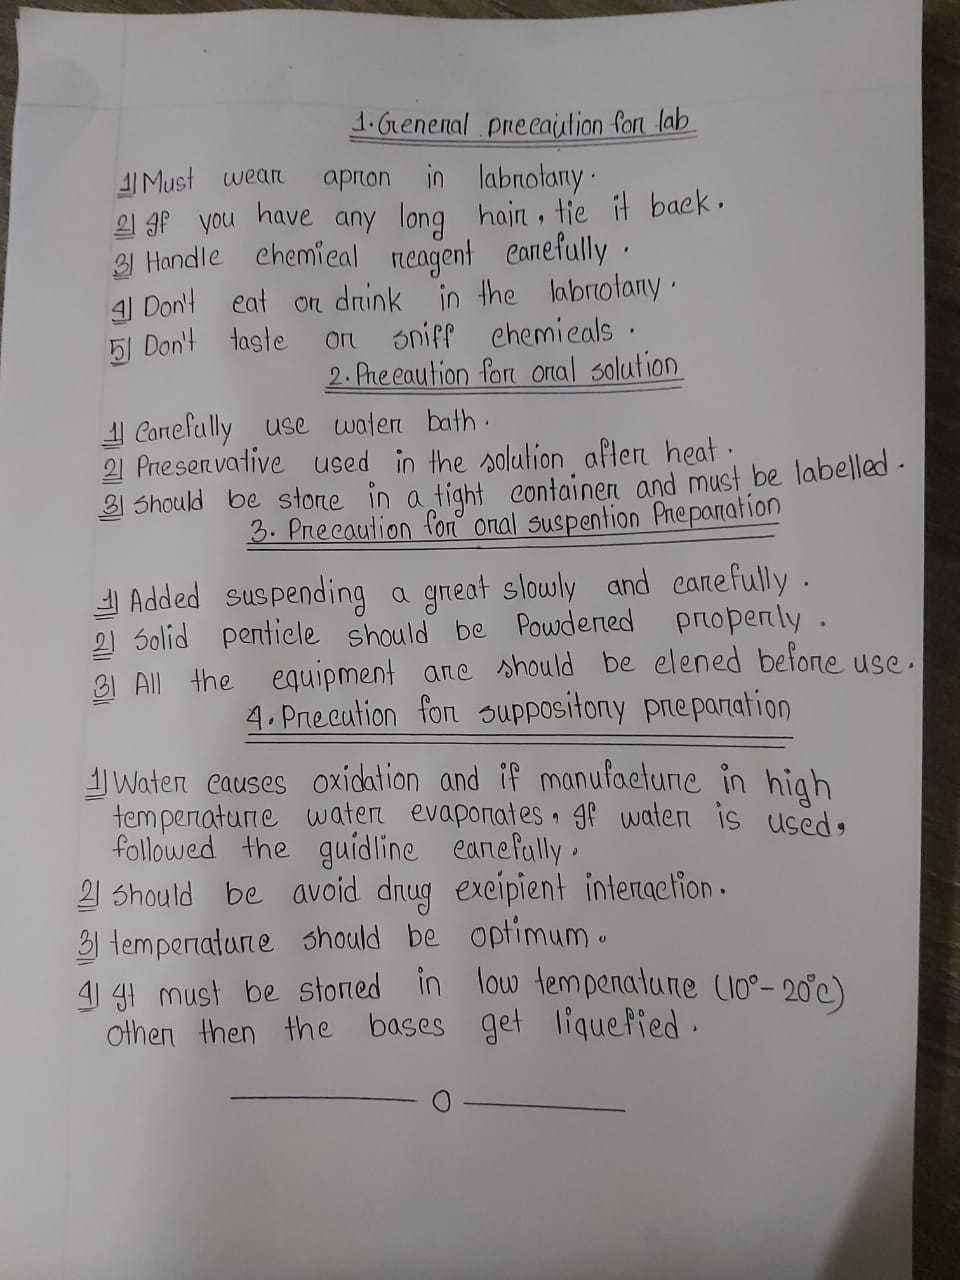 1. General precaution for lab
1) Must wear apron in labrotary.
2) If you have any long hair, tie it back.
3) Handle chemical reagent carefully.
4) Don't eat or drink in the labrotary.
5) Don't taste or sniff chemicals.
2. Precaution for oral solution
1) Carefully use water bath.
2) Preservative used in the solution after heat.
3) Should be store in a tight container and must be labelled.
3. Precaution for oral suspention Preparation
1) Added suspending a great slowly and carefully.
2) Solid perticle should be Powdered properly.
3) All the equipment are should be clened before use.
4. Precution for suppository preparation
1) Water causes oxidation and if manufacture in high
temperature water evaporates, If water is used,
followed the guidline carefully.
2) Should be avoid drug excipient interaction.
3) temperature should be optimum.
4) It must be stored in low temperature (10°-20°c)
other then the bases get liquefied.